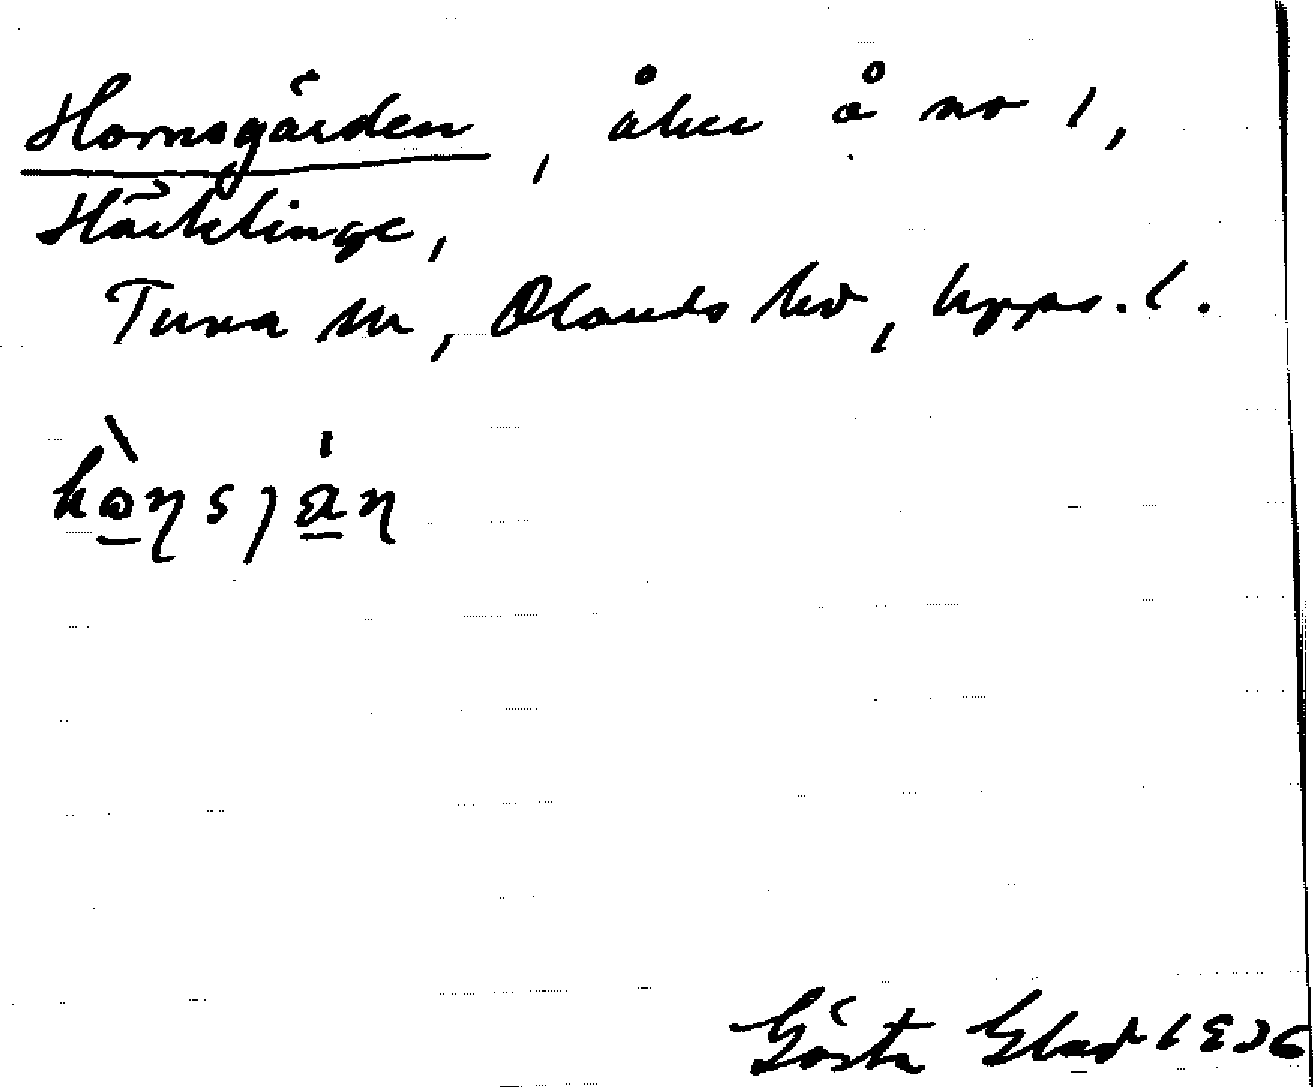 Hornsgärden, åker å nr 1,
Häcklinge,
Tuna sn, Olands hd, Upps. l.
hὼηsȷäη
Gösta Elad 1936